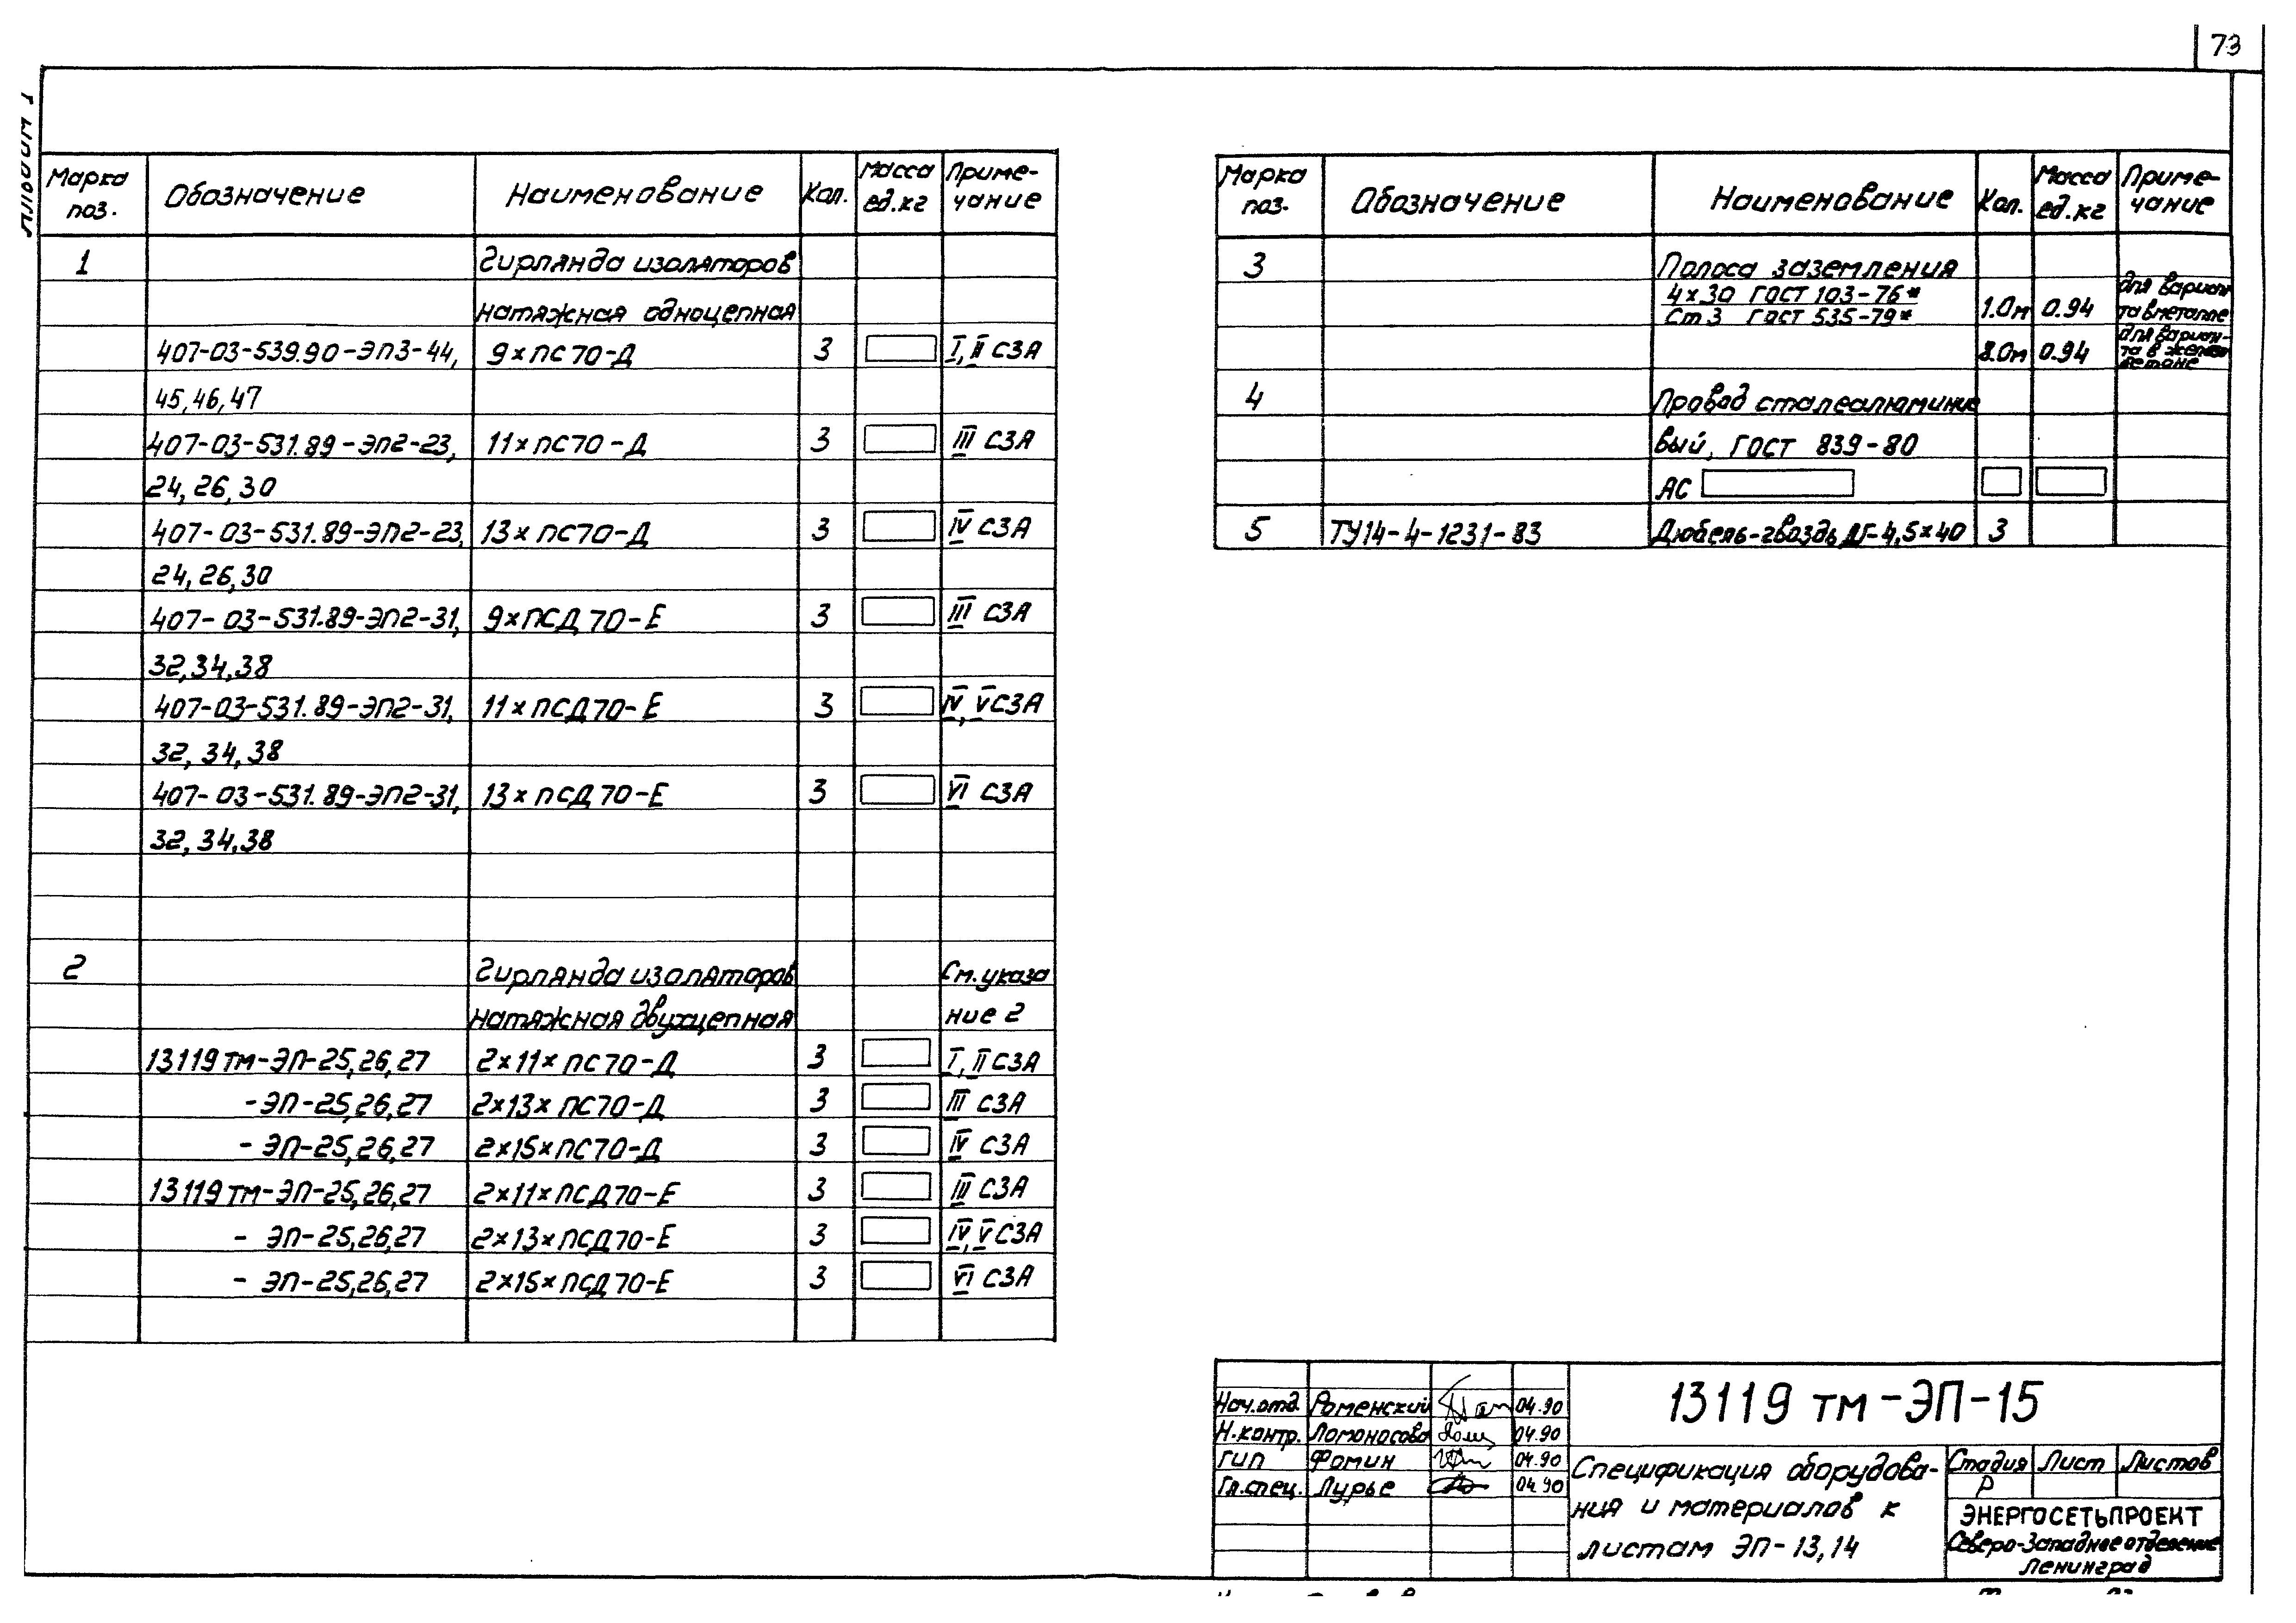 73
Альбом 1
Марка поз. Обозначение Наименование Кол. Масса ед.кг Примечание
1 Гирлянда изоляторов
натяжная одноцепная
407-03-539.90-ЭП3-44, 9×ПС70-Д 3 I, II СЗА
45,46,47
407-03-531.89-ЭП2-23, 11×ПС70-Д 3 III СЗА
24,26,30
407-03-531.89-ЭП2-23, 13×ПС70-Д 3 IV СЗА
24,26,30
407-03-531.89-ЭП2-31, 9×ПСД70-Е 3 III СЗА
32,34,38
407-03-531.89-ЭП2-31, 11×ПСД70-Е 3 IV, V СЗА
32,34,38
407-03-531.89-ЭП2-31, 13×ПСД70-Е 3 VI СЗА
32,34,38
2 Гирлянда изоляторов См.указа
натяжная двухцепная ние 2
13119тм-ЭП-25,26,27 2×11×ПС70-Д 3 I, II СЗА
-ЭП-25,26,27 2×13×ПС70-Д 3 III СЗА
-ЭП-25,26,27 2×15×ПС70-Д 3 IV СЗА
13119тм-ЭП-25,26,27 2×11×ПСД70-Е 3 III СЗА
- ЭП-25,26,27 2×13×ПСД70-Е 3 IV, V СЗА
- ЭП-25,26,27 2×15×ПСД70-Е 3 VI СЗА
Марка поз. Обозначение Наименование Кол. Масса ед.кг Примечание
3 Полоса заземления
4×30 ГОСТ 103-76* для вариан
Ст3 ГОСТ 535-79* 1.0м 0.94 та в металле
для вариан-
8.0м 0.94 та в железо
бетоне
4 Провод сталеалюмине
вый, ГОСТ 839-80
АС
5 ТУ14-4-1231-83 Дюбель-гвоздь ДГ-4,5×40 3
Нач.отд. Роменский 04.90
Н.контр. Ломоносова 04.90
ГИП Фомин 04.90
Гл.спец. Лурье 04.90
13119 тм-ЭП-15
Спецификация оборудова-
ния и материалов к
листам ЭП-13,14
Стадия Лист Листов
Р
ЭНЕРГОСЕТЬПРОЕКТ
Северо-Западное отделение
Ленинград